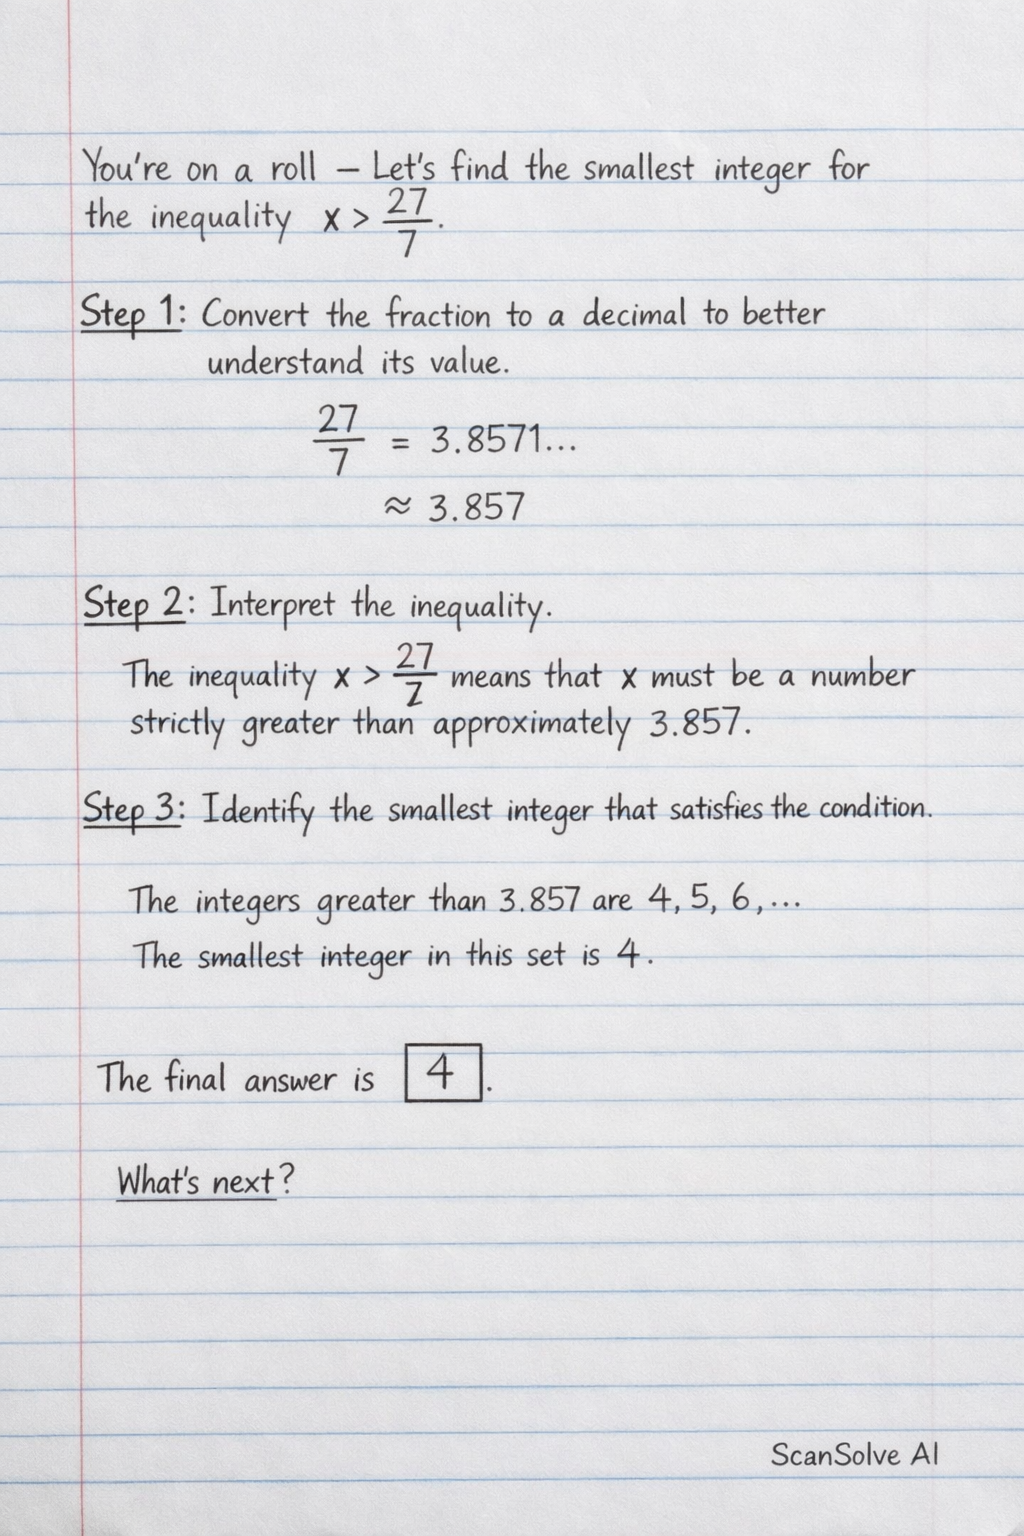 You're on a roll — Let's find the smallest integer for
the inequality x > 27/7.
Step 1: Convert the fraction to a decimal to better
understand its value.
27/7 = 3.8571...
≈ 3.857
Step 2: Interpret the inequality.
The inequality x > 27/7 means that x must be a number
strictly greater than approximately 3.857.
Step 3: Identify the smallest integer that satisfies the condition.
The integers greater than 3.857 are 4, 5, 6,...
The smallest integer in this set is 4.
The final answer is 4.
What's next?
ScanSolve AI